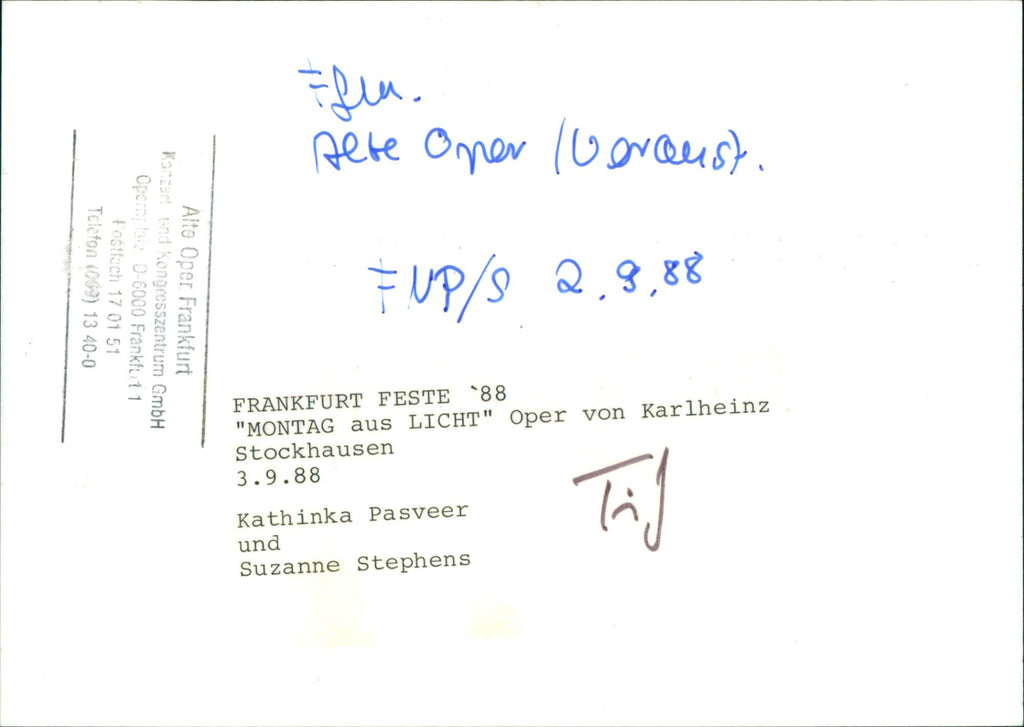 Ffm.
Alte Oper / Veranst.
FNP/S 2.9.88
Alte Oper Frankfurt
Konzert- und Kongresszentrum GmbH
Opernplatz, D-6000 Frankfurt 1
Postfach 17 01 51
Telefon (069) 13 40-0
FRANKFURT FESTE `88
"MONTAG aus LICHT" Oper von Karlheinz
Stockhausen
3.9.88
Kathinka Pasveer
und
Suzanne Stephens